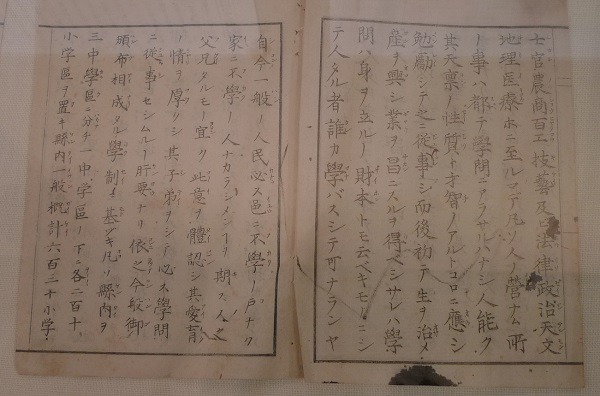 士官農商百工技藝及ヒ法律政治天文
地理医療ホニ至ルマデ凡ソ人ノ營ナム所
ノ事ハ都テ學問ニアラサルハナシ人能ク
其天禀ノ性質ト才智ノアルトコロニ應シ
勉勵シテ之ニ從事シ而後初テ生ヲ治メ
産ヲ興シ業ヲ昌ニスルヲ得ベシサレハ學
問ハ身ヲ立ルノ財本トモ云ベキモノニシ
テ人タル者誰カ學バスシテ可ナランヤ
自今一般ノ人民必ス邑ニ不學ノ戸ナク
家ニ不學ノ人ナカラシメンヿヲ期ス人ノ
父兄タルモノ宜ク此意ヲ體認シ其愛育
ノ情ヲ厚クシ其子弟ヲシテ必ス學問
ニ從事セシムルヿ肝要ナリ依之今般御
頒布相成タル學制ニ基ツキ凡ソ縣内ヲ
三中學區ニ分チ一中學區ノ下ニ各二百十
小学區ヲ置キ縣内一般概計六百三十小学